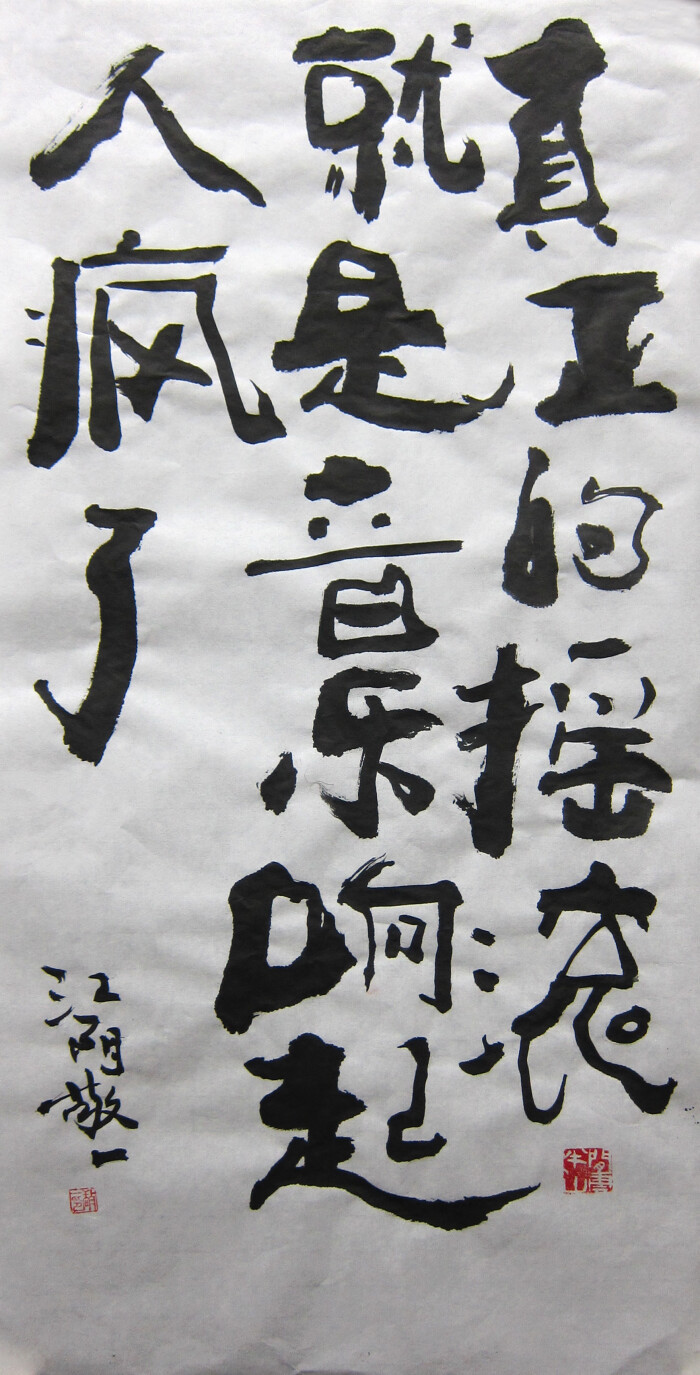 真正的摇滚
就是音乐响起
人疯了
江阴敬一